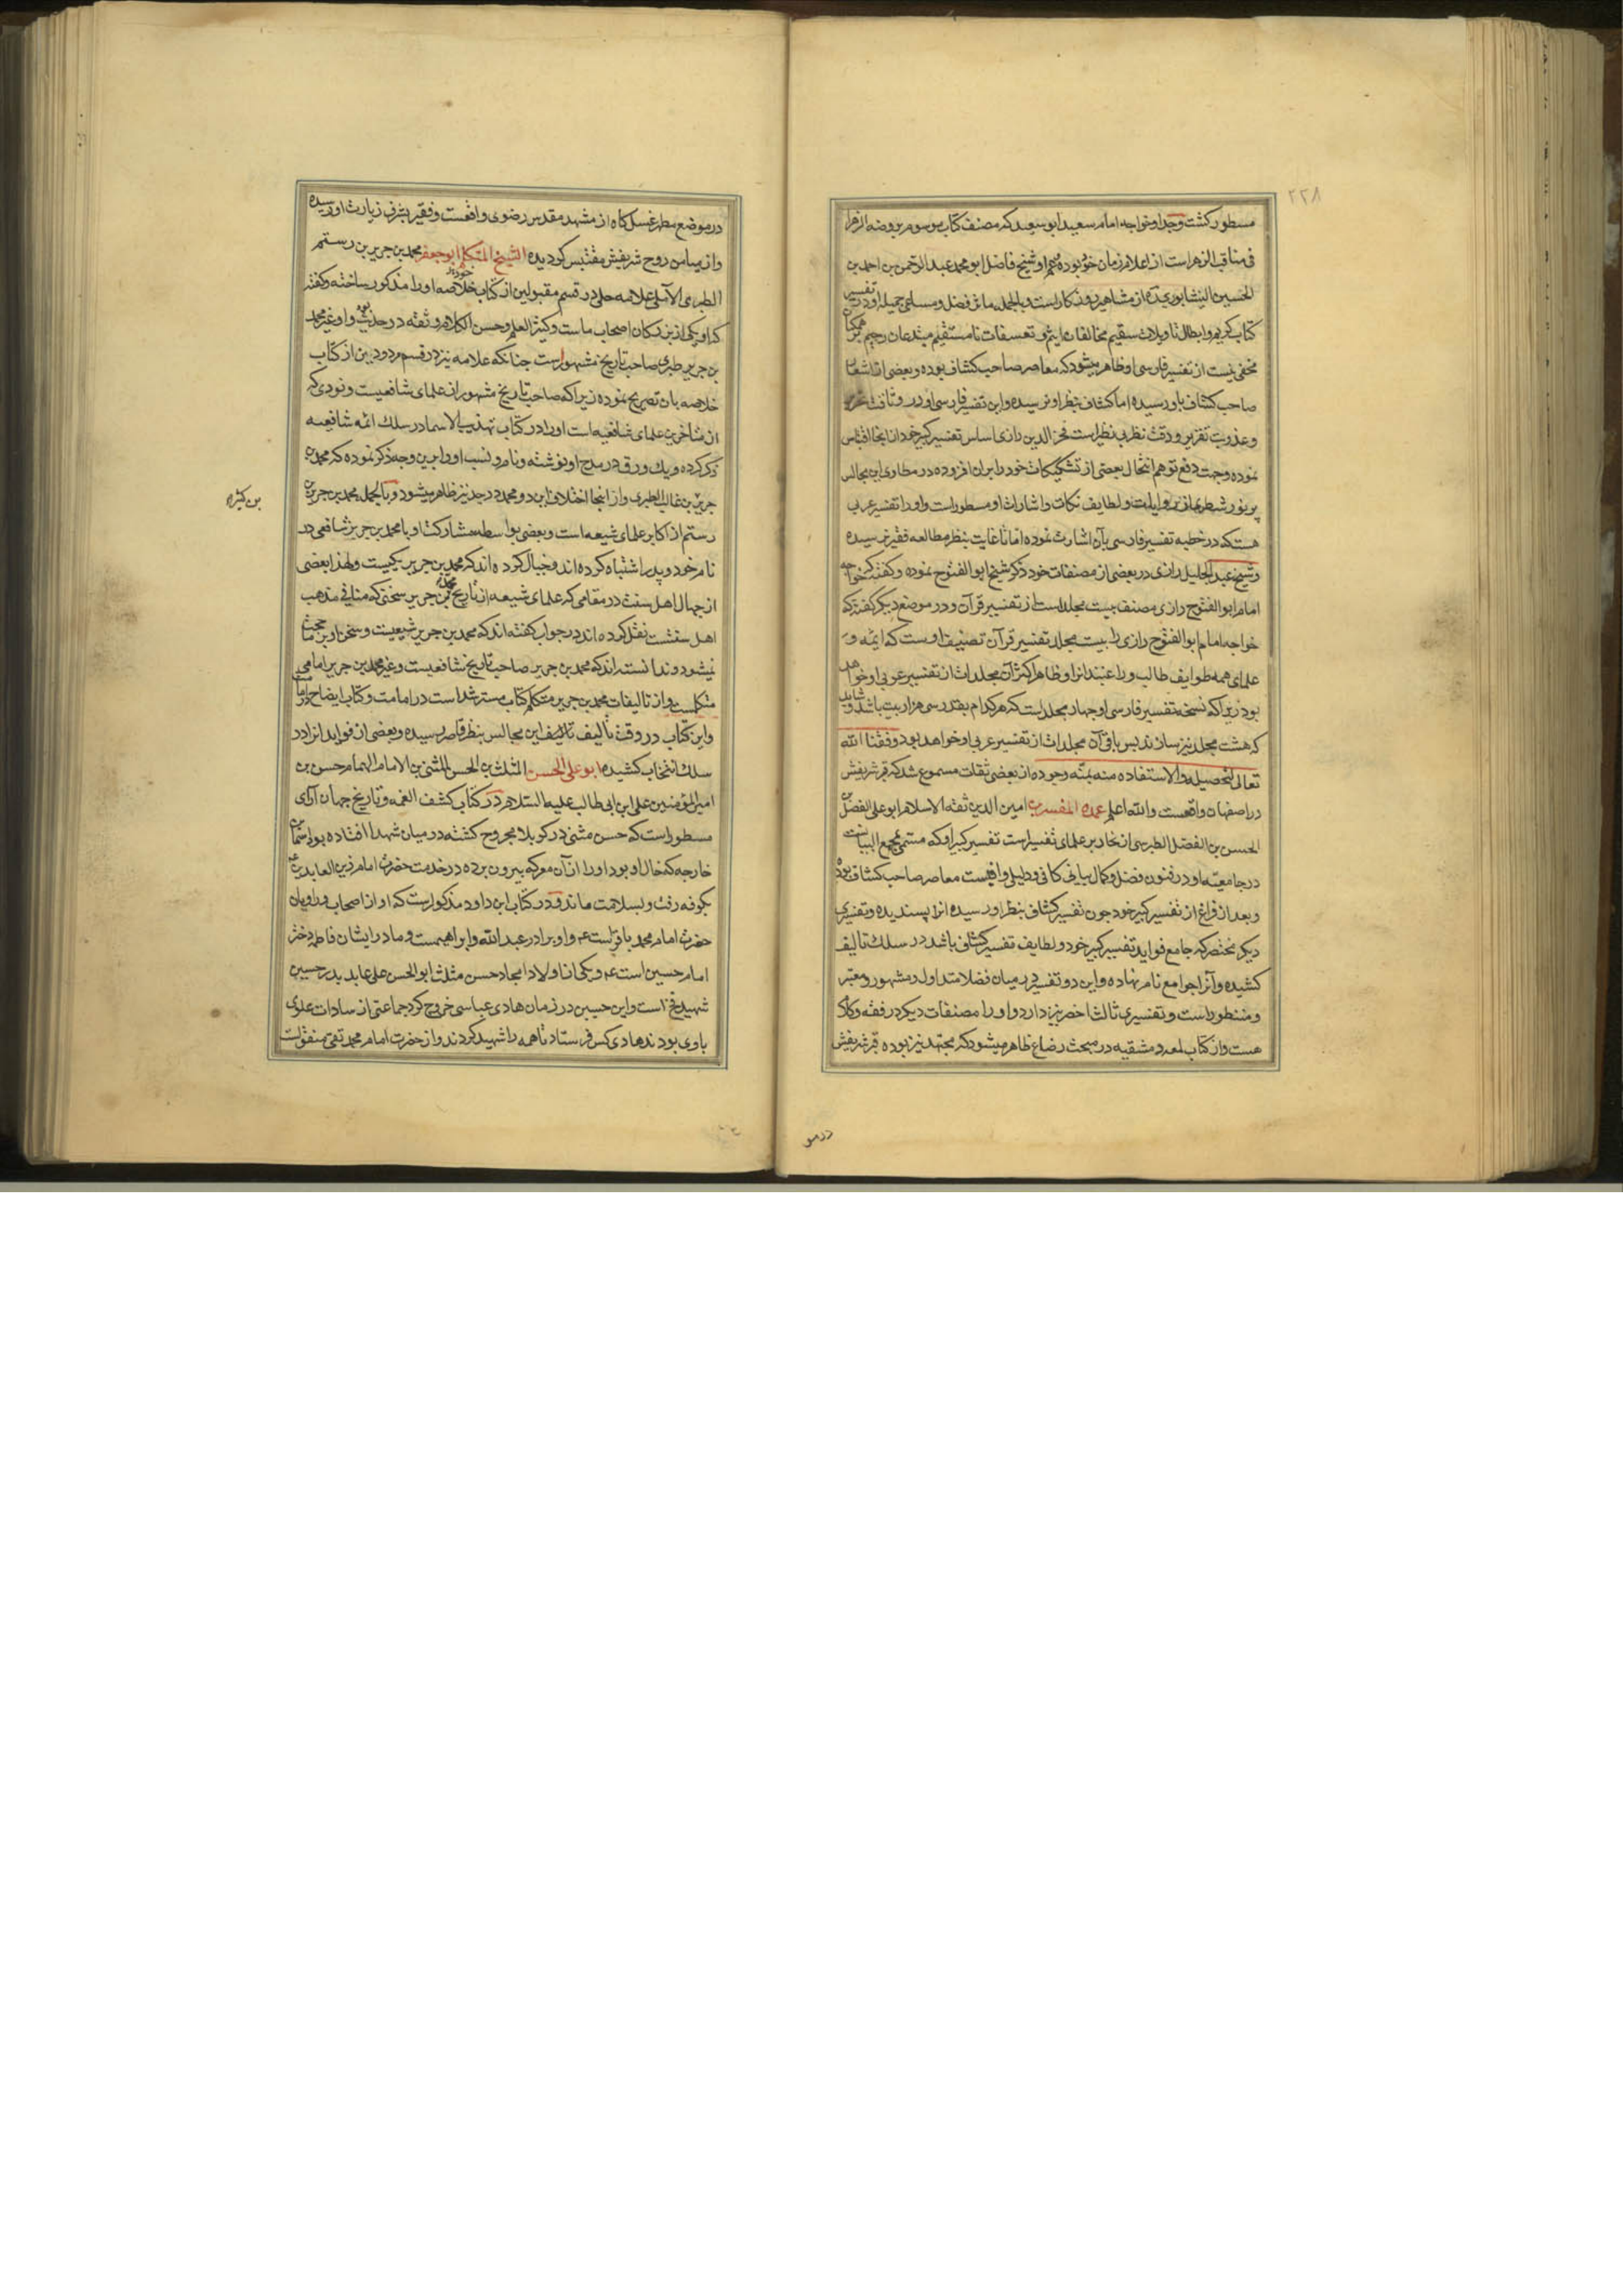 ۲۲۸
مسطور کشت وجد او خواجه امام سعید ابو سعید که مصنف کتاب موسوم بروضه الزهرا
فی مناقب الزهراست از اعلام زمان خود بوده و عم او شیخ فاضل ابو محمد عبد الرحمن بن احمد بن
الحسین النیشابوری از مشاهیر روزکار است و بالجمله مآثر فضل و مساعی جمیله او در تفسیر
کتاب کریم و ابطال تاویلات سقیم مخالفان اثیم و تعسفات نامستقیم مبتدعان رجیم بر همکنان
مخفی نیست از تفسیر فارسی او ظاهر میشود که معاصر صاحب کشاف بوده و بعضی از اشعار
صاحب کشاف باو رسیده اما کشاف بنظر او نرسیده و این تفسیر فارسی او در وثاقت تحریر
و عذوبت تقریر و دقت نظر بی نظیر است فخر الدین رازی اساس تفسیر کبیر خود را از انجا اقتباس
نموده وجهت دفع توهم انتحال بعضی از تشکیکات خود را بران افزوده در مطاوی این مجالس
پر نور شطری از روایات و لطایف نکات و اشارات او مسطور است و او را تفسیر عربی
هست که در خطبه تفسیر فارسی بآن اشارت نموده اما تا غایت بنظر مطالعه فقیر نرسیده
و شیخ عبد الجلیل رازی در بعضی از مصنفات خود ذکر شیخ ابو الفتوح نموده و کفته که خواجه
امام ابو الفتوح رازی مصنف بیست مجلد است از تفسیر قرآن و در موضع دیکر کفته که
خواجه امام ابو الفتوح رازی را بیست مجلد تفسیر قرآن تصنیف اوست که ائمه و
علمای همه طوایف طالب و راغبند انرا و ظاهرا اکثر آن مجلدات از تفسیر عربی او خواهد
بود زیرا که نسخه تفسیر فارسی او چهار مجلد است که هر کدام بقدر سی هزار بیت باشد و شاید
که هشت مجلد نیز سازند پس باقی آن مجلدات از تفسیر عربی او خواهد بود وفقنا الله
تعالی لتحصیله والاستفاده منه بمنه وجوده از بعضی ثقات مسموع شد که قبر شریفش
در اصفهان واقعست والله اعلم عمده المفسرین امین الدین ثقه الاسلام ابو علی الفضل بن
الحسن بن الفضل الطبرسی از نحاریر علمای تفسیر است تفسیر کبیر او که مسمی بمجمع البیانست
در جامعیه او در فنون فضل و کمال بیانی کافی و دلیلی وافیست معاصر صاحب کشاف بوده
و بعد از فراغ از تفسیر کبیر خود چون تفسیر کشاف بنظر او رسیده انرا پسندیده و تفسیری
دیکر مختصر که جامع فواید تفسیر کبیر خود و لطایف تفسیر کشاف باشد در سلک تالیف
کشیده و آنرا جوامع نام نهاده و این دو تفسیر در میان فضلا متداول و مشهور و معتبر
و منظور است و تفسیری ثالث اخصر نیز دارد و او را مصنفات دیکر در فقه و کلام
هست و از کتاب لمعه دمشقیه در مبحث رضاع ظاهر میشود که مجتهد نیز بوده قبر شریفش
در مو
در موضع مطهر غسل کاه از مشهد مقدس رضوی واقعست و فقیر بشرف زیارت او رسیده
و از میامن روح شریفش مقتبس کردیده الشیخ المتکلم ابو جعفر محمد بن جریر بن رستم
الطبری الآملی علامه حلی در قسم مقبولین از کتاب خلاصه خود او را مذکور ساخته و کفته
که او یکی از بزرکان اصحاب ماست و کثیر العلم و حسن الکلام و ثقه در حدیث بود و او غیر محمد
بن جریر طبری صاحب تاریخ مشهور است چنانکه علامه نیز در قسم مردودین از کتاب
خلاصه بان تصریح نموده زیرا که صاحب تاریخ مشهور از علمای شافعیست و نووی که
از متاخرین علمای شافعیه است او را در کتاب تهذیب الاسما در سلک ائمه شافعیه
ذکر کرده و یک ورق در مدح او نوشته و نام و نسب او را برین وجه ذکر نموده که محمد بن
جریر بن غالب الطبری و از انجا اختلاف این دو محمد در جد نیز ظاهر میشود و بالجمله محمد بن جریر بن
بن کثیر
رستم از اکابر علمای شیعه است و بعضی بواسطه مشارکت او با محمد بن جریر شافعی در
نام خود و پدر اشتباه کرده اند و خیال کرده اند که محمد بن جریر یکیست و لهذا بعضی
از جهال اهل سنت در مقامی که علمای شیعه از تاریخ محمد بن جریر سخنی که منافی مذهب
اهل سنتست نقل کرده اند در جواب کفته اند که محمد بن جریر شیعیست و سخن او بر ما حجت
نمیشود و ندانسته اند که محمد بن جریر صاحب تاریخ شافعیست و غیر محمد بن جریر امامی
متکلمست و از تالیفات محمد بن جریر متکلم کتاب مسترشد است در امامت و کتاب ایضاح در امامت
و این کتاب در وقت تالیف این مجالس بنظر قاصر رسیده و بعضی از فواید انرا در
سلک انتخاب کشیده ابو علی الحسن المثلث بن الحسن المثنی بن الامام الهمام حسن بن
امیر المؤمنین علی ابن ابی طالب علیه السلام در کتاب کشف الغمه و تاریخ جهان آرای
مسطور است که حسن مثنی در کربلا مجروح کشته در میان شهدا افتاده بود اسما بن
خارجه که خال او بود او را از آن معرکه بیرون برده در خدمت حضرت امام زین العابدین
بکوفه رفت و بسلامت ماند و در کتاب ابن داود مذکور است که او از اصحاب و راویان
حضرت امام محمد باقر است و او برادر عبد الله و ابراهیمست و مادر ایشان فاطمه دختر
امام حسین است و یکی از اولاد امجاد حسن مثلث ابو الحسن علی عابد پدر حسین
شهید فخ است و این حسین در زمان هادی عباسی خروج کرد جماعتی از سادات علوی
باوی بودند هادی کس فرستاد تا همه را شهید کردند و از حضرت امام محمد تقی منقولست